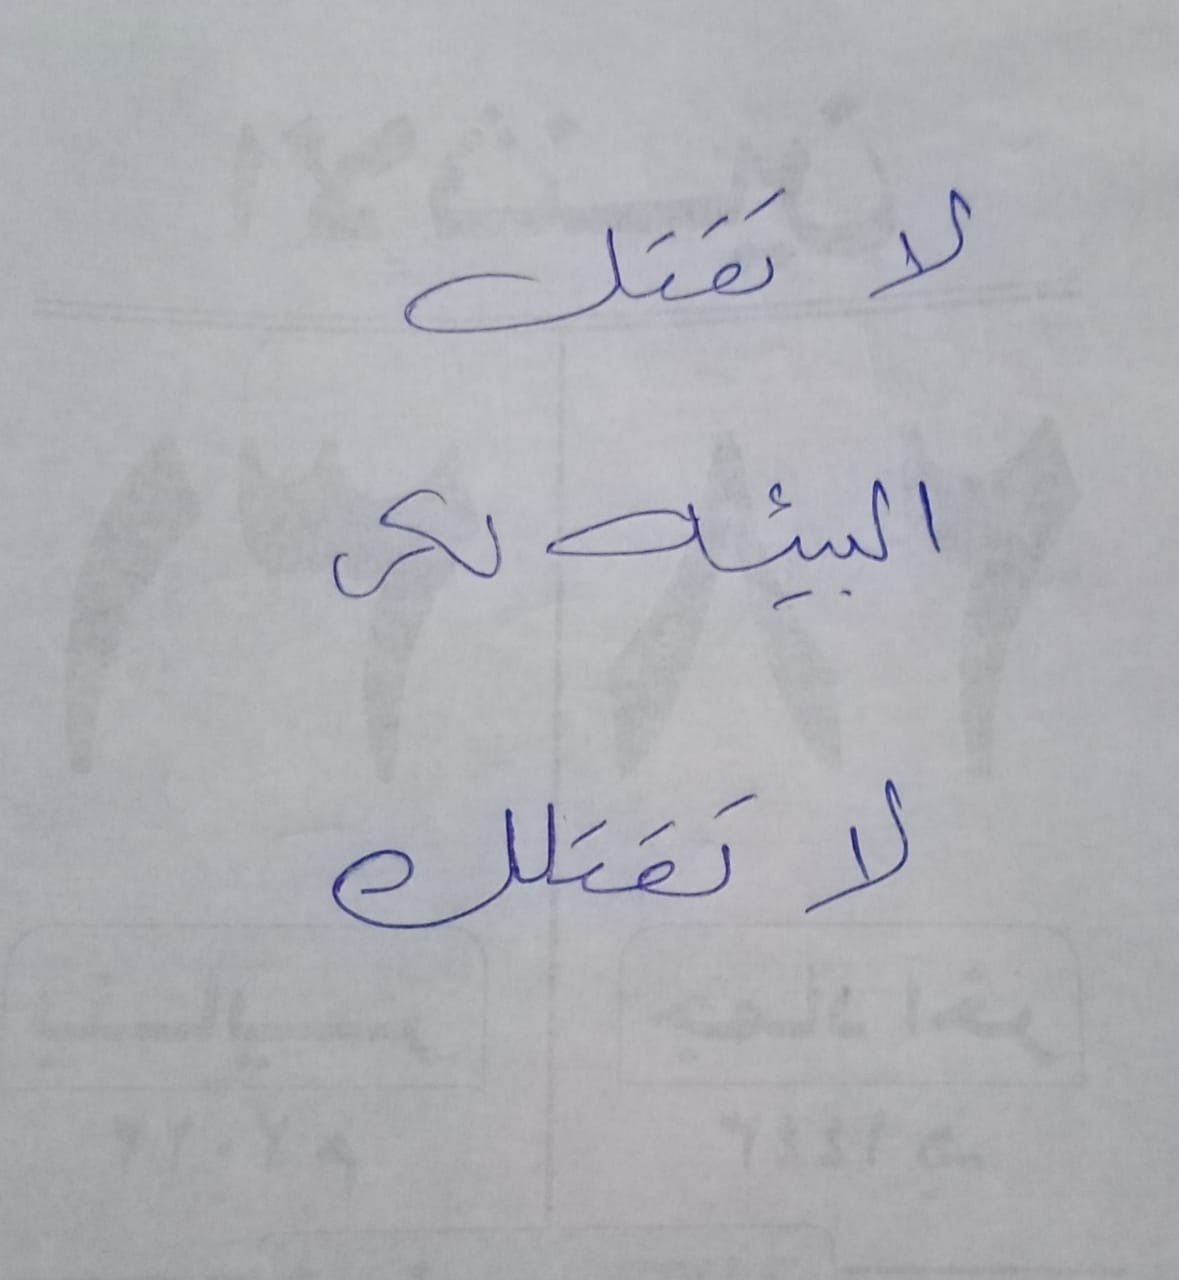 لا تقتل
البيئه لكى
لا تقتلك